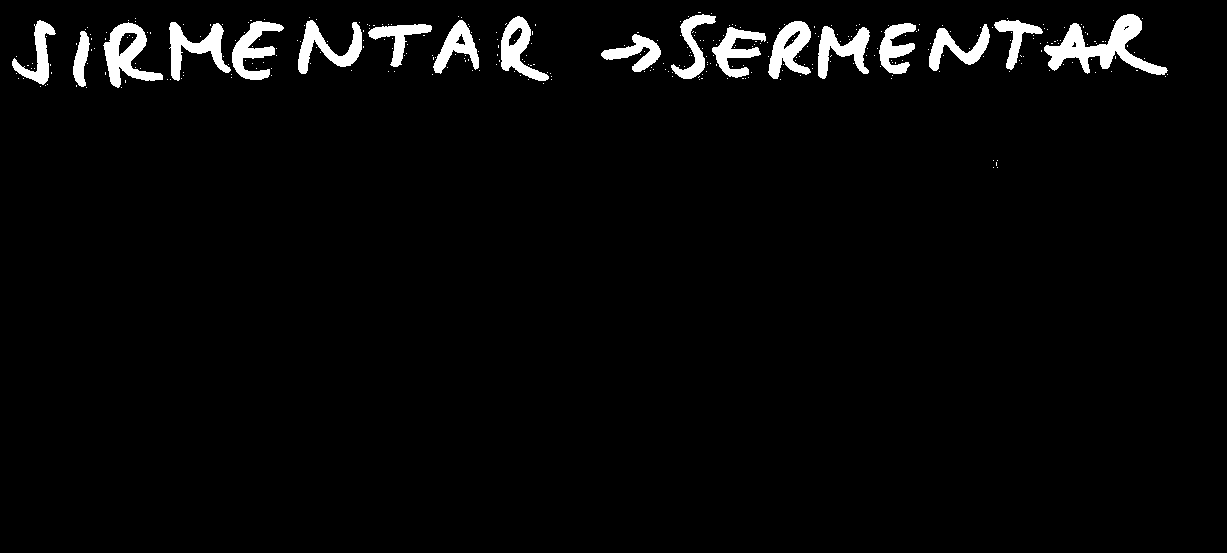 SIRMENTAR → SERMENTAR